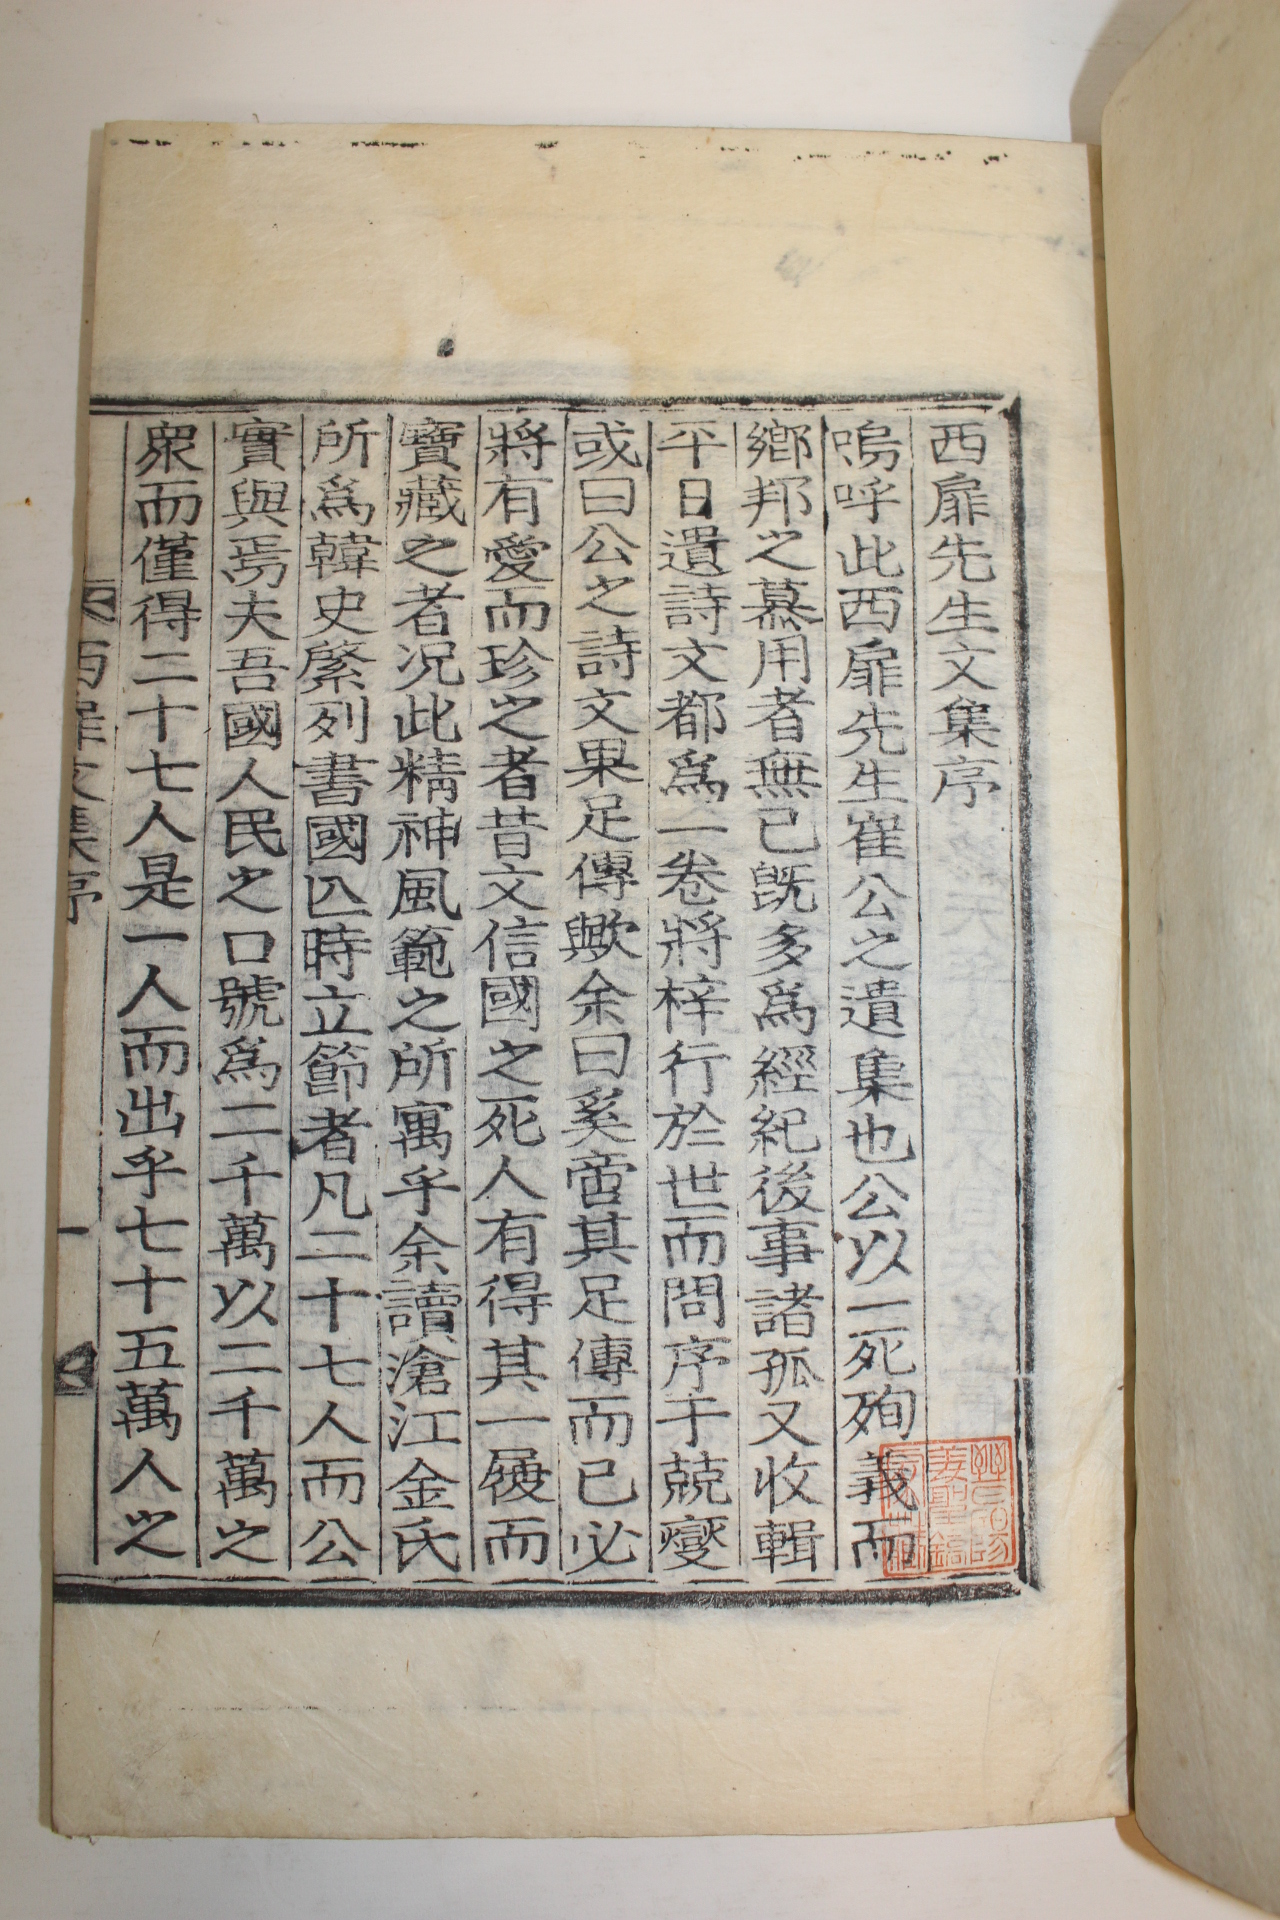 西扉先生文集序
嗚呼此西扉先生崔公之遺集也公以一死殉義而
鄕邦之慕用者無已旣多爲經紀後事諸孤又收輯
平日遺詩文都爲一卷將梓行於世而問序于兢燮
或曰公之詩文果足傳歟余曰奚啻其足傳而已必
將有愛而珍之者昔文信國之死人有得其一屐而
寶藏之者况此精神風範之所寓乎余讀滄江金氏
所爲韓史綮列書國亡時立節者凡二十七人而公
實與焉夫吾國人民之口號爲二千萬以二千萬之
衆而僅得二十七人是一人而出乎七十五萬人之
西扉文集序
一